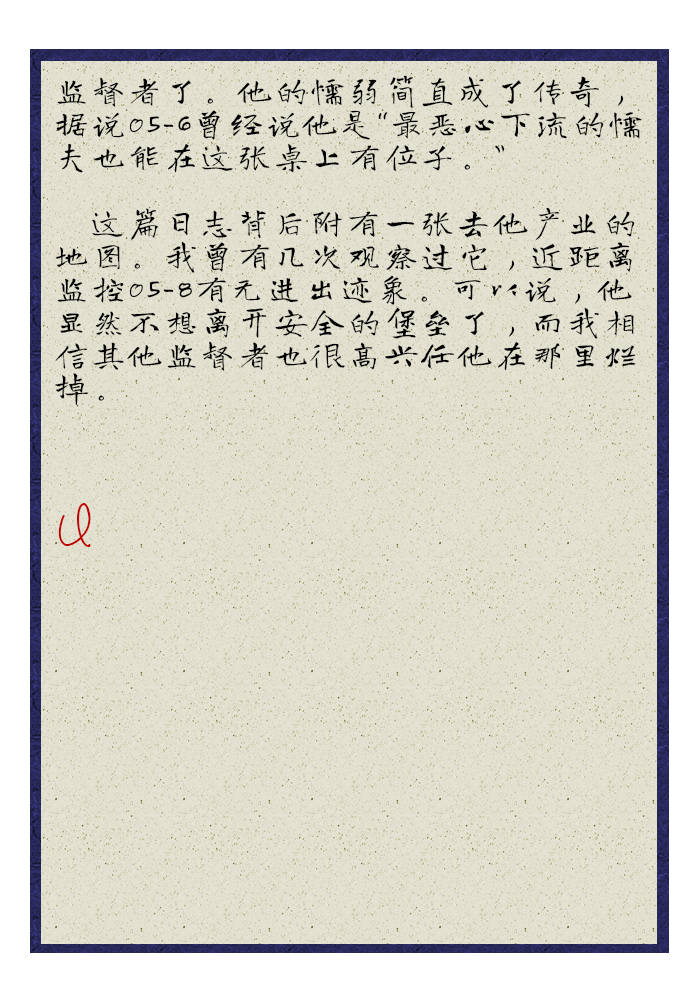 监督者了。他的懦弱简直成了传奇，
据说05-6曾经说他是“最恶心下流的懦
夫也能在这张桌上有位子。”
这篇日志背后附有一张去他产业的
地图。我曾有几次观察过它，近距离
监控05-8有无进出迹象。可以说，他
显然不想离开安全的堡垒了，而我相
信其他监督者也很高兴任他在那里烂
掉。